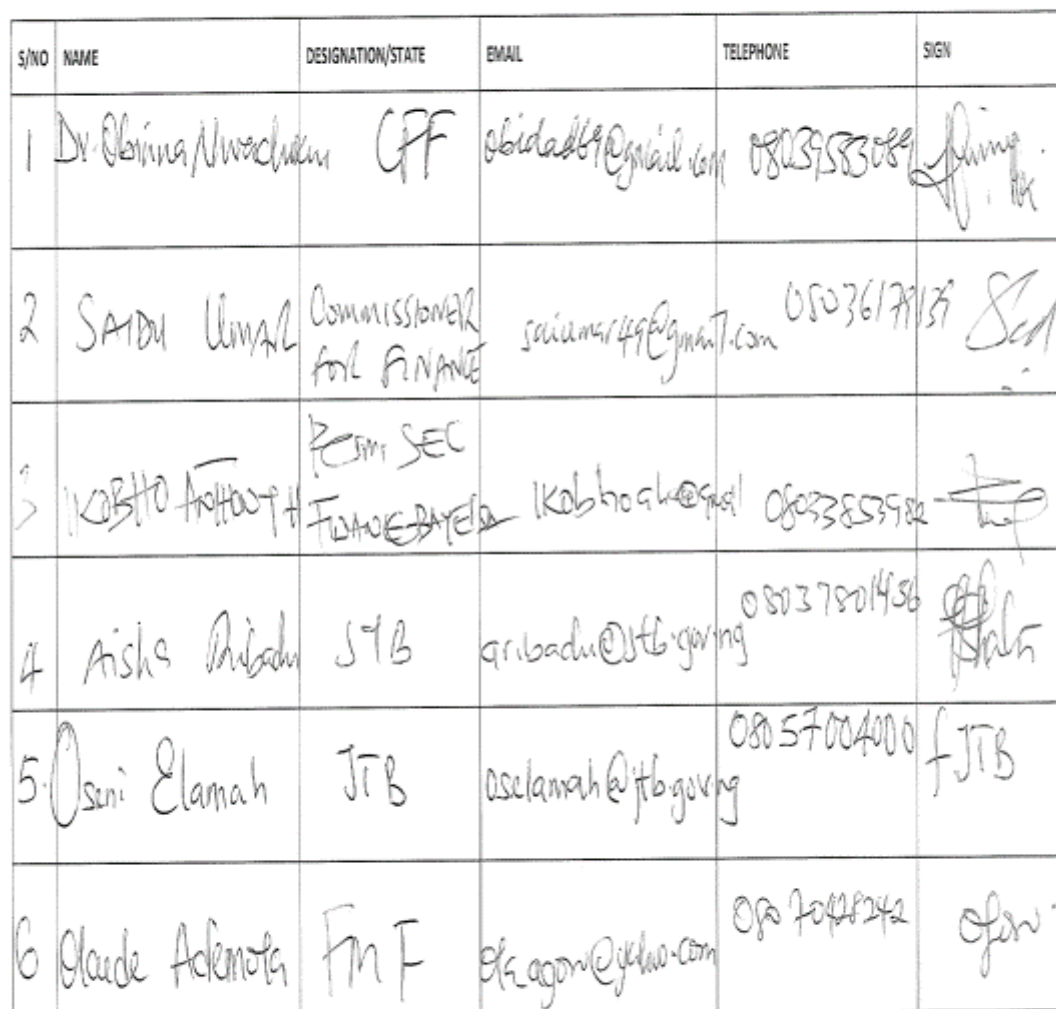 S/NO NAME DESIGNATION/STATE EMAIL TELEPHONE SIGN
1 Dr. Obinna Nwachukwu CFF obidad69@gmail.com 08039583089
2 SAIDU UMAR COMMISSIONER FOR FINANCE saiumar49@gmail.com 08036179139
3 IKOBHO ANTHONY H Perm SEC FINANCE BAYELSA 08033853982
4 Aisha Ribadu JTB aribadu@jtb.gov.ng 08037801436
5. Oseni Elamah JTB oselamah@jtb.gov.ng 08057004000 f JTB
6 Olaude Ademola FMF 08070428242